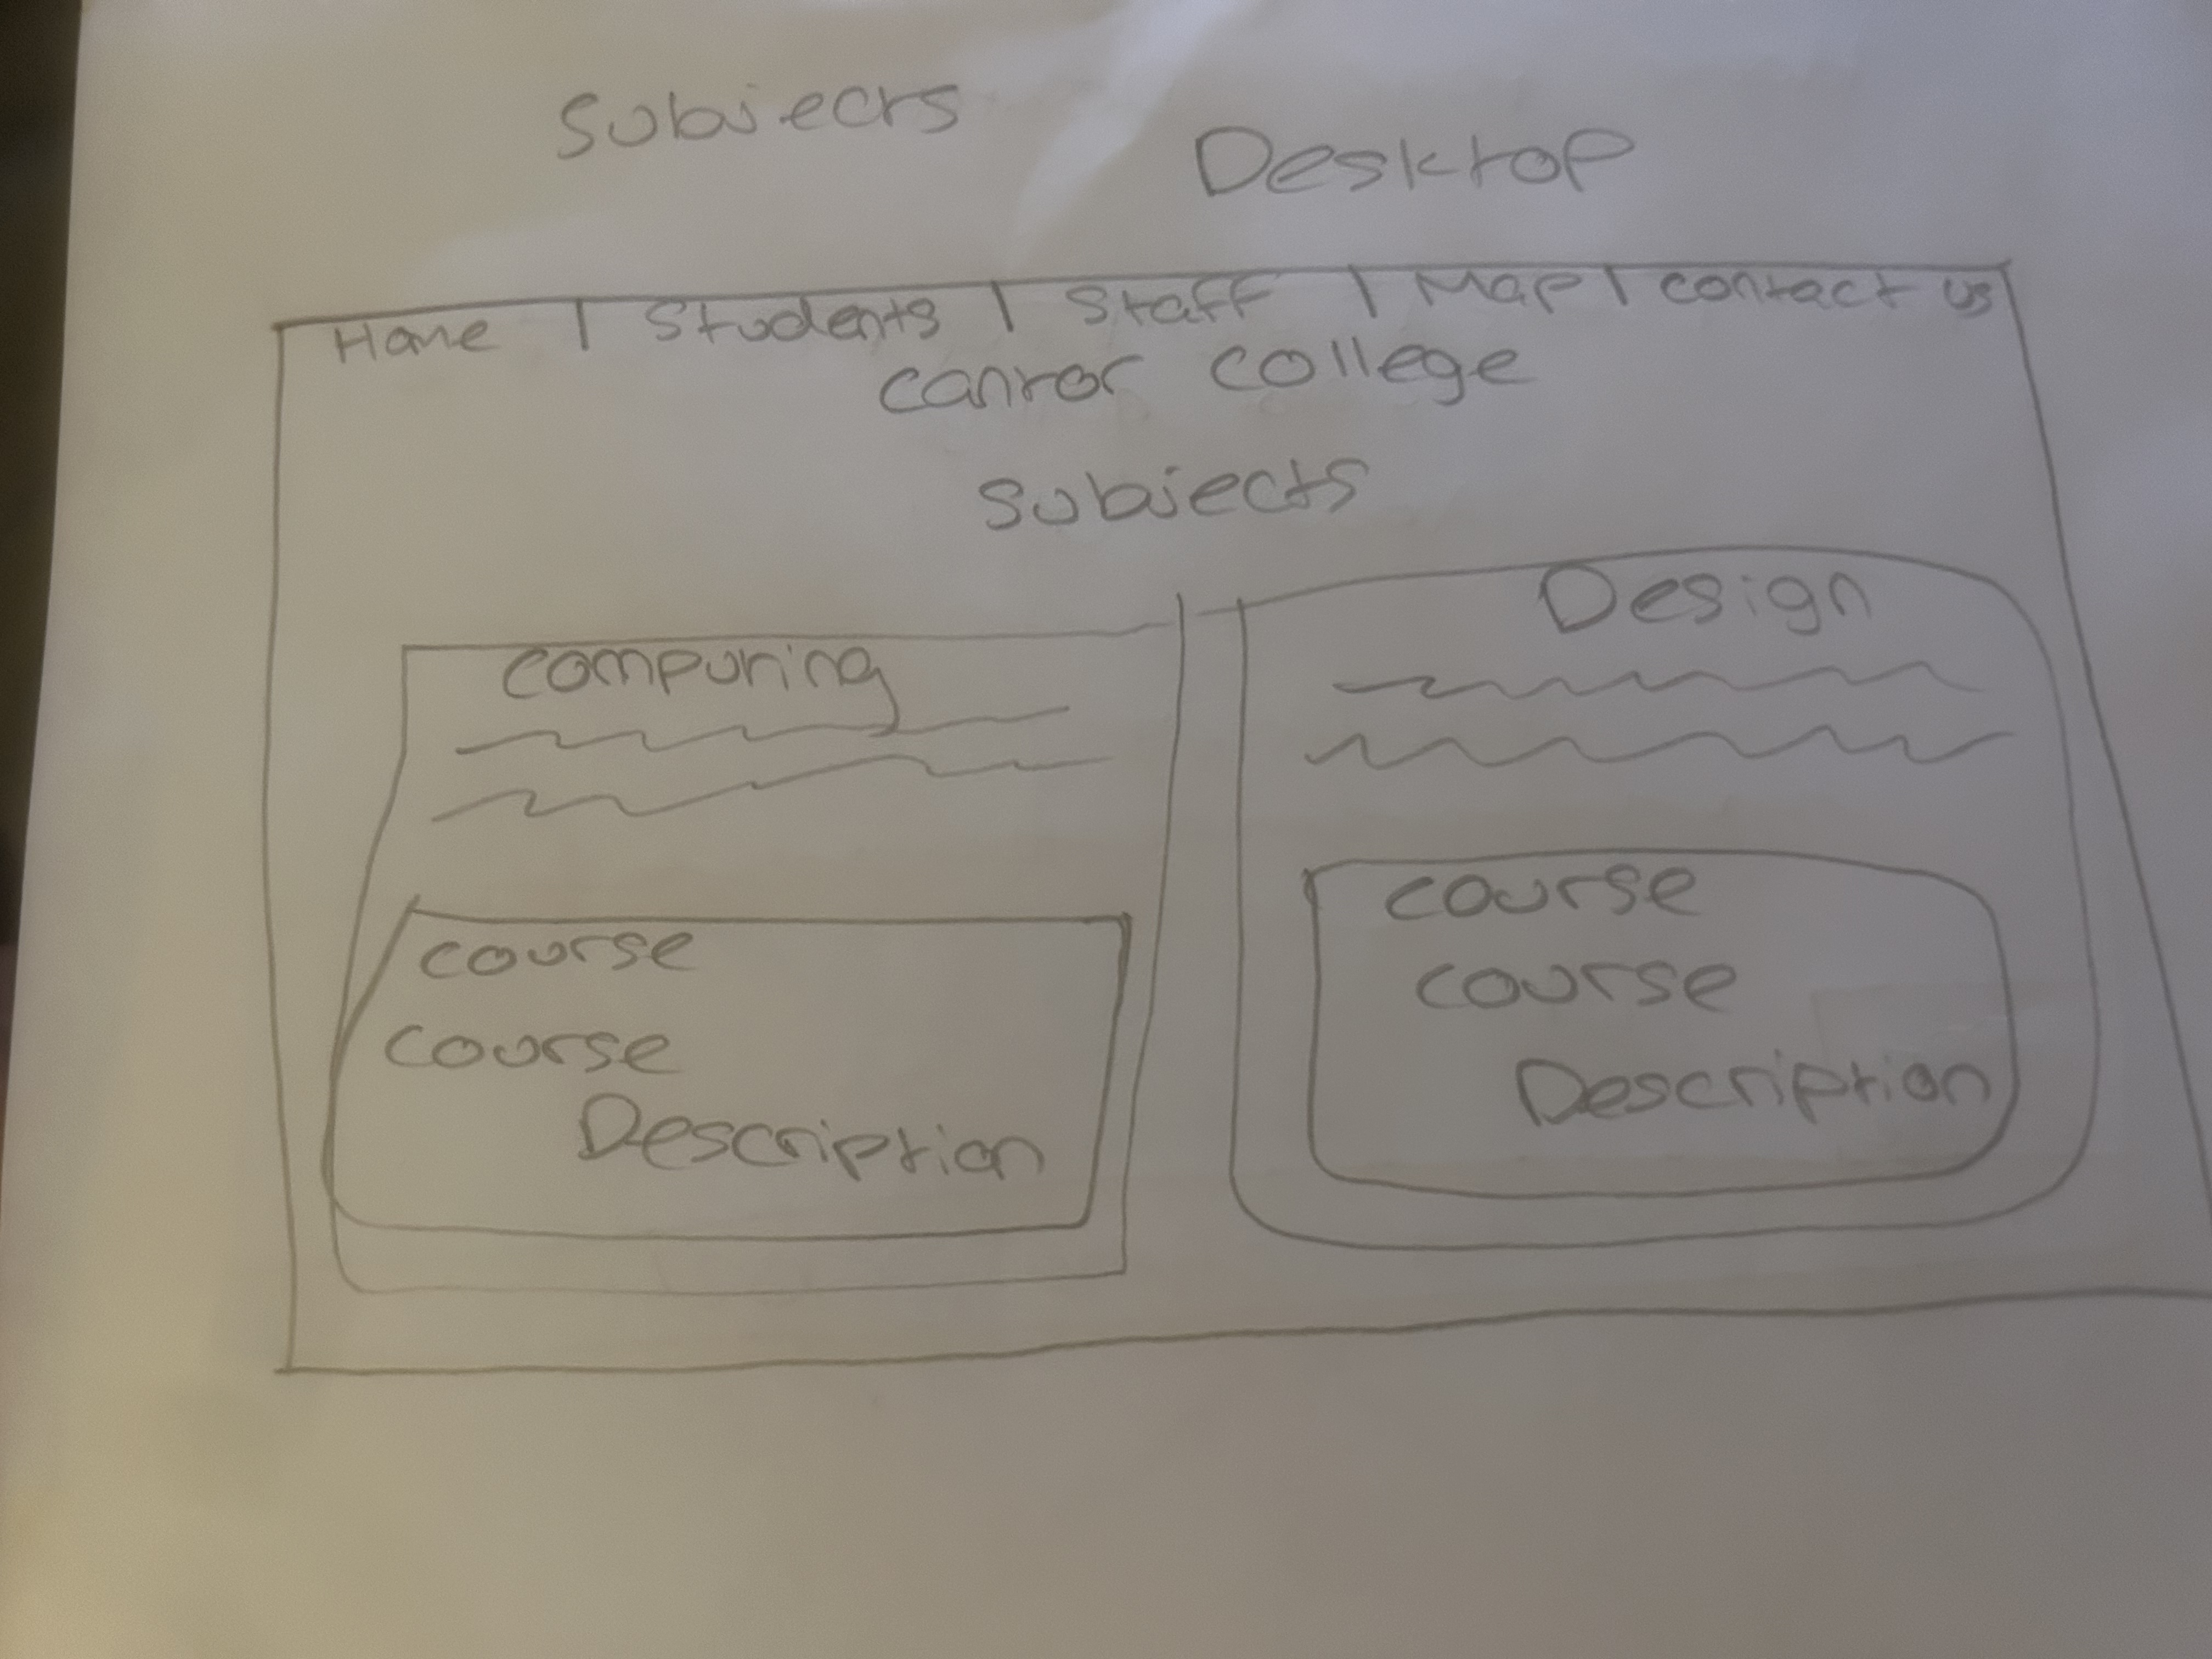 Subjects Desktop
Home | Students | Staff | Map | contact us
Cantor College
Subjects
Computing
Course
Course
Description
Design
Course
Course
Description